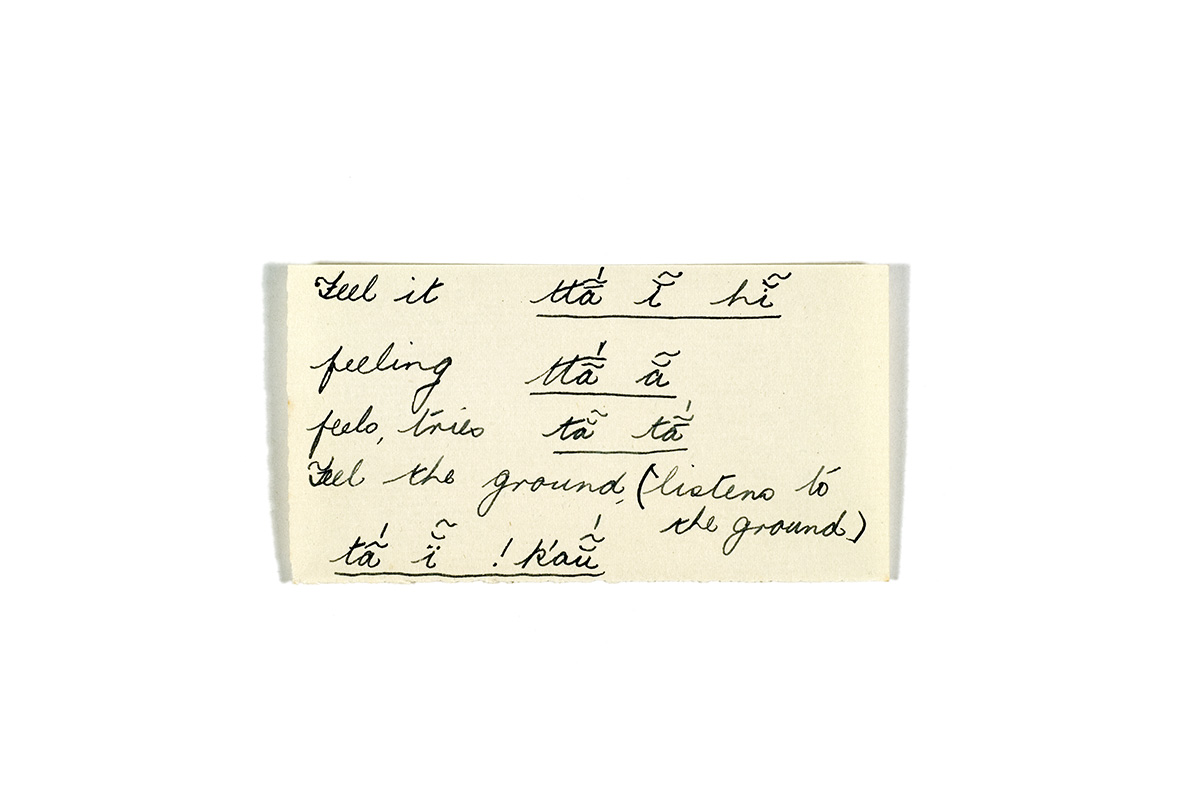 Feel it ttã́ ĩ̆ hĩ̆
feeling ttã́ ã̆
feels, tries tã̆ tã̆́
Feel the ground, (listens to
the ground)
tã́ ĩ̆ !k'aũ̆́